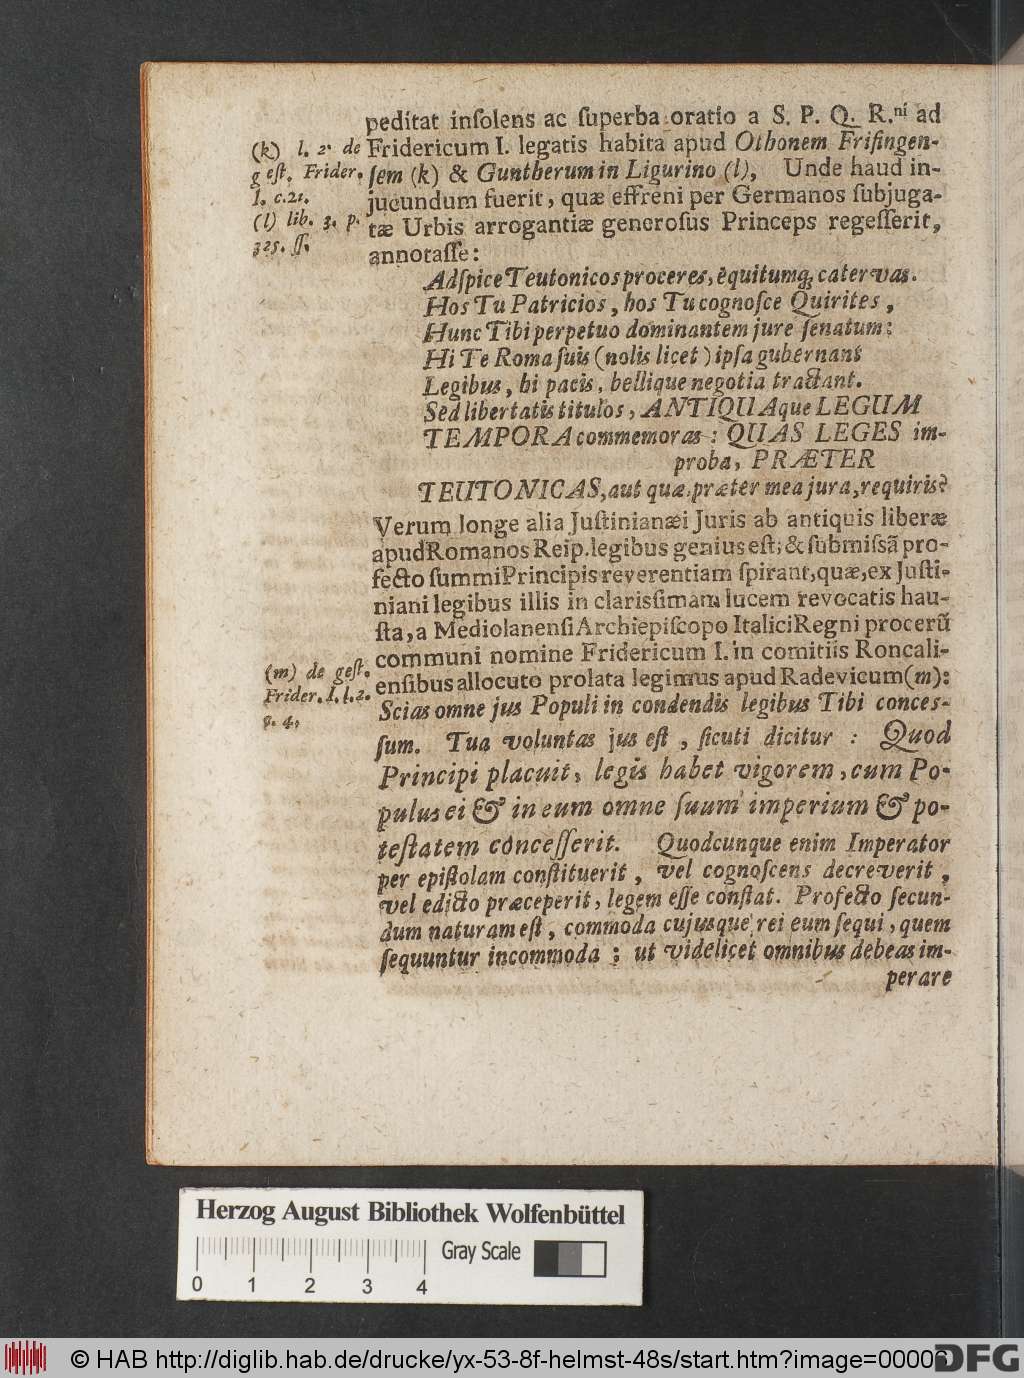 peditat inſolens ac ſuperba oratio a S. P. Q. R.ni ad
Fridericum I. legatis habita apud Othonem Friſingen-
ſem (k) & Guntherum in Ligurino (l), Unde haud in-
jucundum fuerit, quæ effreni per Germanos ſubjuga-
tæ Urbis arrogantiæ generoſus Princeps regeſſerit,
annotaſſe:
(k) l. 2. de
geſt. Frider.
I. c. 21.
(l) lib. 3. p.
325. ſſ.
Adſpice Teutonicos proceres, equitumq; catervas.
Hos Tu Patricios, hos Tu cognoſce Quirites,
Hunc Tibi perpetuo dominantem jure ſenatum:
Hi Te Roma ſuis (nolis licet) ipſa gubernant
Legibus, hi pacis, bellique negotia tractant.
Sed libertatis titulos, ANTIQUAque LEGUM
TEMPORA commemoras: QUAS LEGES im-
proba, PRÆTER
TEUTONICAS, aut quæ præter mea jura, requiris?
Verum longe alia Juſtinianæi Juris ab antiquis liberæ
apud Romanos Reip. legibus genius eſt; & ſubmiſſã pro-
fecto ſummi Principis reverentiam ſpirant, quæ, ex Juſti-
niani legibus illis in clarisſimam lucem revocatis hau-
ſta, a Mediolanenſi Archiepiſcopo Italici Regni procerũ
communi nomine Fridericum I. in comitiis Roncali-
enſibus allocuto prolata legimus apud Radevicum (m):
(m) de geſt.
Frider. I. l. 2.
c. 4.
Scias omne jus Populi in condendis legibus Tibi conceſ-
ſum. Tua voluntas jus eſt, ſicuti dicitur: Quod
Principi placuit, legis habet vigorem, cum Po-
pulus ei & in eum omne ſuum imperium & po-
teſtatem conceſſerit. Quodcunque enim Imperator
per epiſtolam conſtituerit, vel cognoſcens decreverit,
vel edicto præceperit, legem eſſe conſtat. Profecto ſecun-
dum naturam eſt, commoda cujusque rei eum ſequi, quem
ſequuntur incommoda; ut videlicet omnibus debeas im-
perare
Herzog August Bibliothek Wolfenbüttel
Gray Scale
0 1 2 3 4
© HAB http://diglib.hab.de/drucke/yx-53-8f-helmst-48s/start.htm?image=00006
DFG